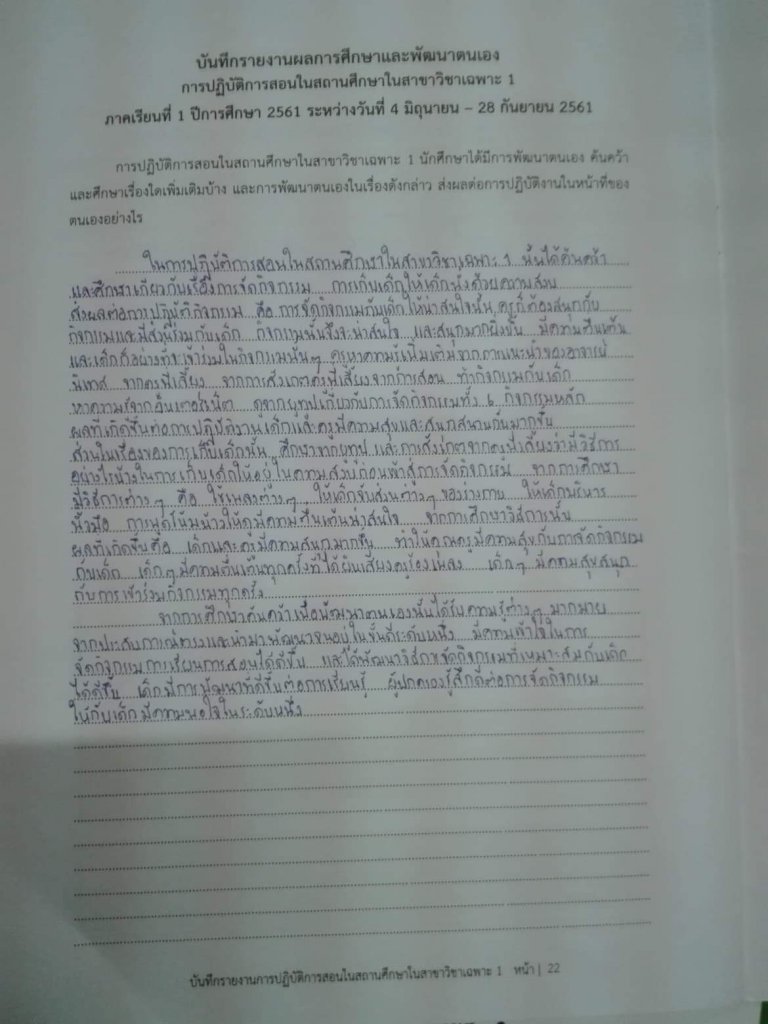 บันทึกรายงานผลการศึกษาและพัฒนาตนเอง
การปฏิบัติการสอนในสถานศึกษาในสาขาวิชาเฉพาะ 1
ภาคเรียนที่ 1 ปีการศึกษา 2561 ระหว่างวันที่ 4 มิถุนายน – 28 กันยายน 2561
การปฏิบัติการสอนในสถานศึกษาในสาขาวิชาเฉพาะ 1 นักศึกษาได้มีการพัฒนาตนเอง ค้นคว้า
และศึกษาเรื่องใดเพิ่มเติมบ้าง และการพัฒนาตนเองในเรื่องดังกล่าว ส่งผลต่อการปฏิบัติงานในหน้าที่ของ
ตนเองอย่างไร
ในการปฏิบัติการสอนในสถานศึกษาในสาขาวิชาเฉพาะ 1 นั้นได้ค้นคว้า
และศึกษาเกี่ยวกับเรื่องการจัดกิจกรรม การเก็บเด็กให้เด็กนั่งด้วยความสงบ
ส่งผลต่อการปฏิบัติกิจกรรม คือ การจัดกิจกรรมกับเด็กให้น่าสนใจนั้น ครูก็ต้องสนุกกับ
กิจกรรมและมีส่วนร่วมกับเด็ก กิจกรรมนั้นจึงจะน่าสนใจ และสนุกมากยิ่งขึ้น มีความตื่นเต้น
และเด็กก็อยากที่จะเข้าร่วมในกิจกรรมนั้นๆ ครูหาความรู้เพิ่มเติมจากการแนะนำของอาจารย์
นิเทศ จากครูพี่เลี้ยง จากการสังเกตครูพี่เลี้ยงจากการสอน ทำกิจกรรมกับเด็ก
หาความรู้จากอินเตอร์เน็ต ดูจากยูทูปเกี่ยวกับการจัดกิจกรรมทั้ง 6 กิจกรรมหลัก
ผลที่เกิดขึ้นต่อการปฏิบัติงานเด็กและครูมีความสุขและสนุกสนานกันมากขึ้น
ส่วนในเรื่องของการเก็บเด็กนั้น ศึกษาจากยูทูป และการสังเกตจากครูพี่เลี้ยงว่ามีวิธีการ
อย่างไรบ้างในการเก็บเด็กให้อยู่ในความสงบก่อนเข้าสู่การจัดกิจกรรม จากการศึกษา
มีวิธีการต่างๆ คือ ใช้เพลงต่างๆ ให้เด็กจับส่วนต่างๆของร่างกาย ให้เด็กบริหาร
นิ้วมือ การพูดโน้มน้าวให้ดูมีความตื่นเต้นน่าสนใจ จากการศึกษาวิธีการนั้น
ผลที่เกิดขึ้นคือ เด็กและครูมีความสนุกมากขึ้น ทำให้คุณครูมีความสุขกับการจัดกิจกรรม
กับเด็ก เด็กๆมีความตื่นเต้นทุกครั้งที่ได้ยินเสียงครูร้องเพลง เด็กๆ มีความสุขสนุก
กับการเข้าร่วมกิจกรรมทุกครั้ง
จากการศึกษาค้นคว้าเพื่อพัฒนาตนเองนั้นได้รับความรู้ต่างๆ มากมาย
จากประสบการณ์ตรงและนำมาพัฒนาจนอยู่ในขั้นที่ระดับหนึ่ง มีความเข้าใจในการ
จัดกิจกรรมการเรียนการสอนได้ดีขึ้น และได้พัฒนาวิธีการจัดกิจกรรมที่เหมาะสมกับเด็ก
ได้ดีขึ้น เด็กมีการพัฒนาที่ดีขึ้นต่อการเรียนรู้ ผู้ปกครองรู้สึกดีต่อการจัดกิจกรรม
ให้กับเด็กมีความพอใจในระดับหนึ่ง
บันทึกรายงานการปฏิบัติการสอนในสถานศึกษาในสาขาวิชาเฉพาะ 1 หน้า | 22